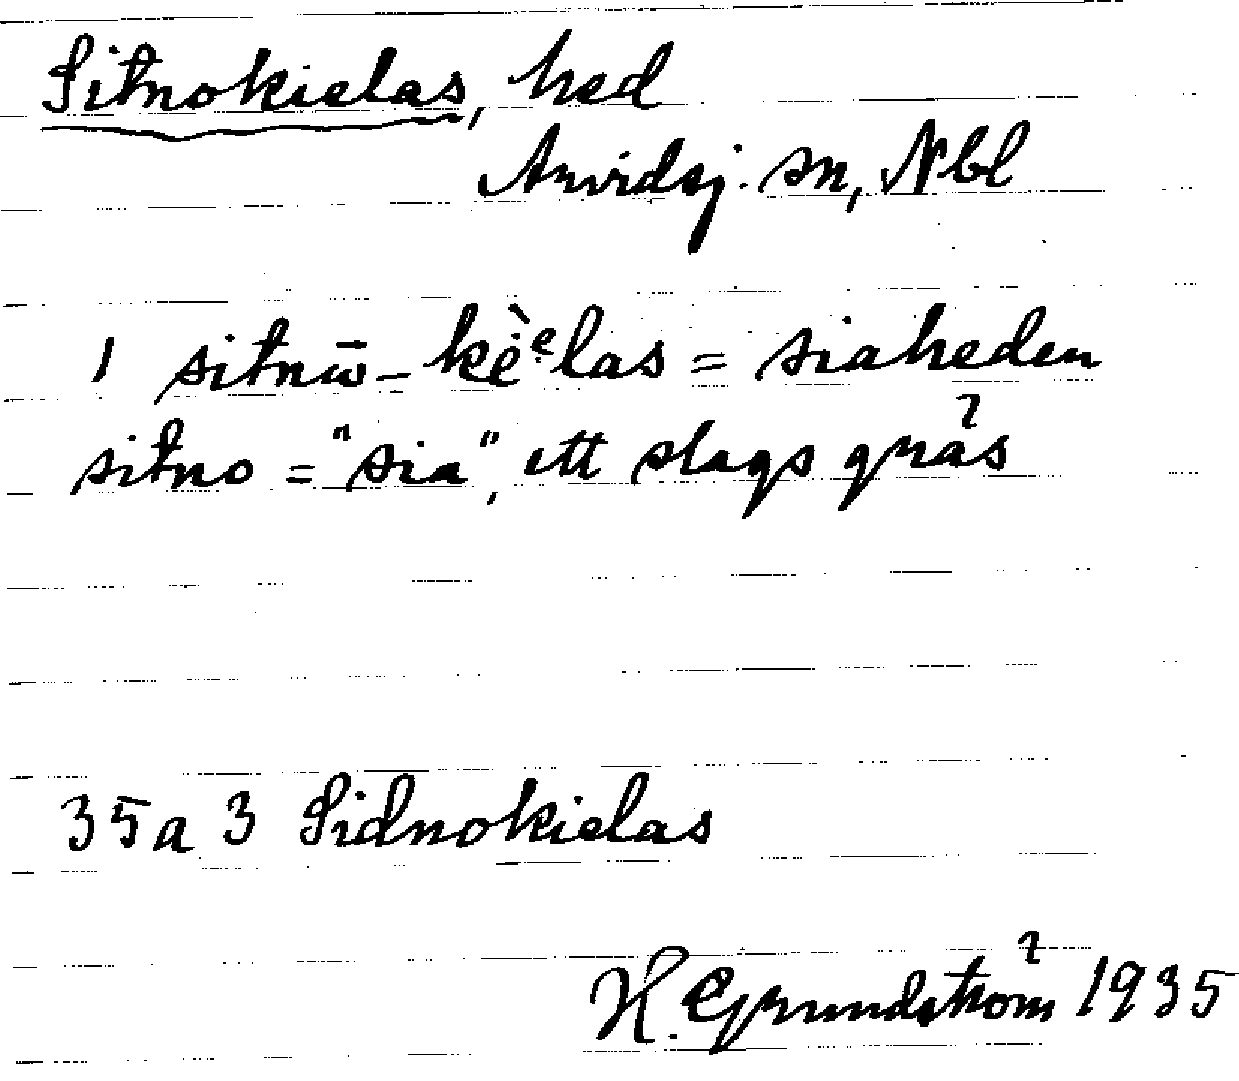 Sitnokielas, hed
Arvidsj. sn, Nbl
1 sitnω̄-kė̀ᵉlas = siaheden
sitno = "sia", ett slags gräs
35a 3 Sidnokielas
H. Grundström 1935